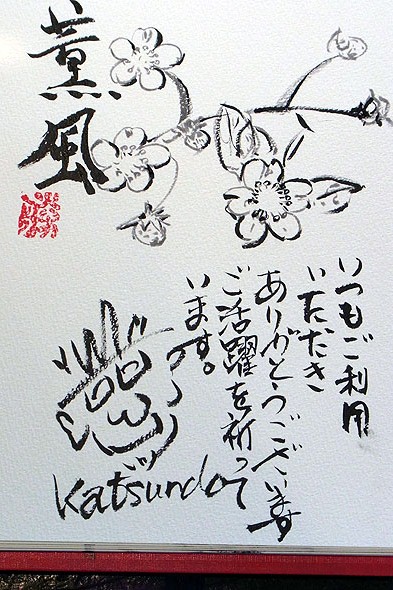 薫風
いつもご利用
いただき
ありがとうございます
ご活躍を祈って
います。
Katsundo